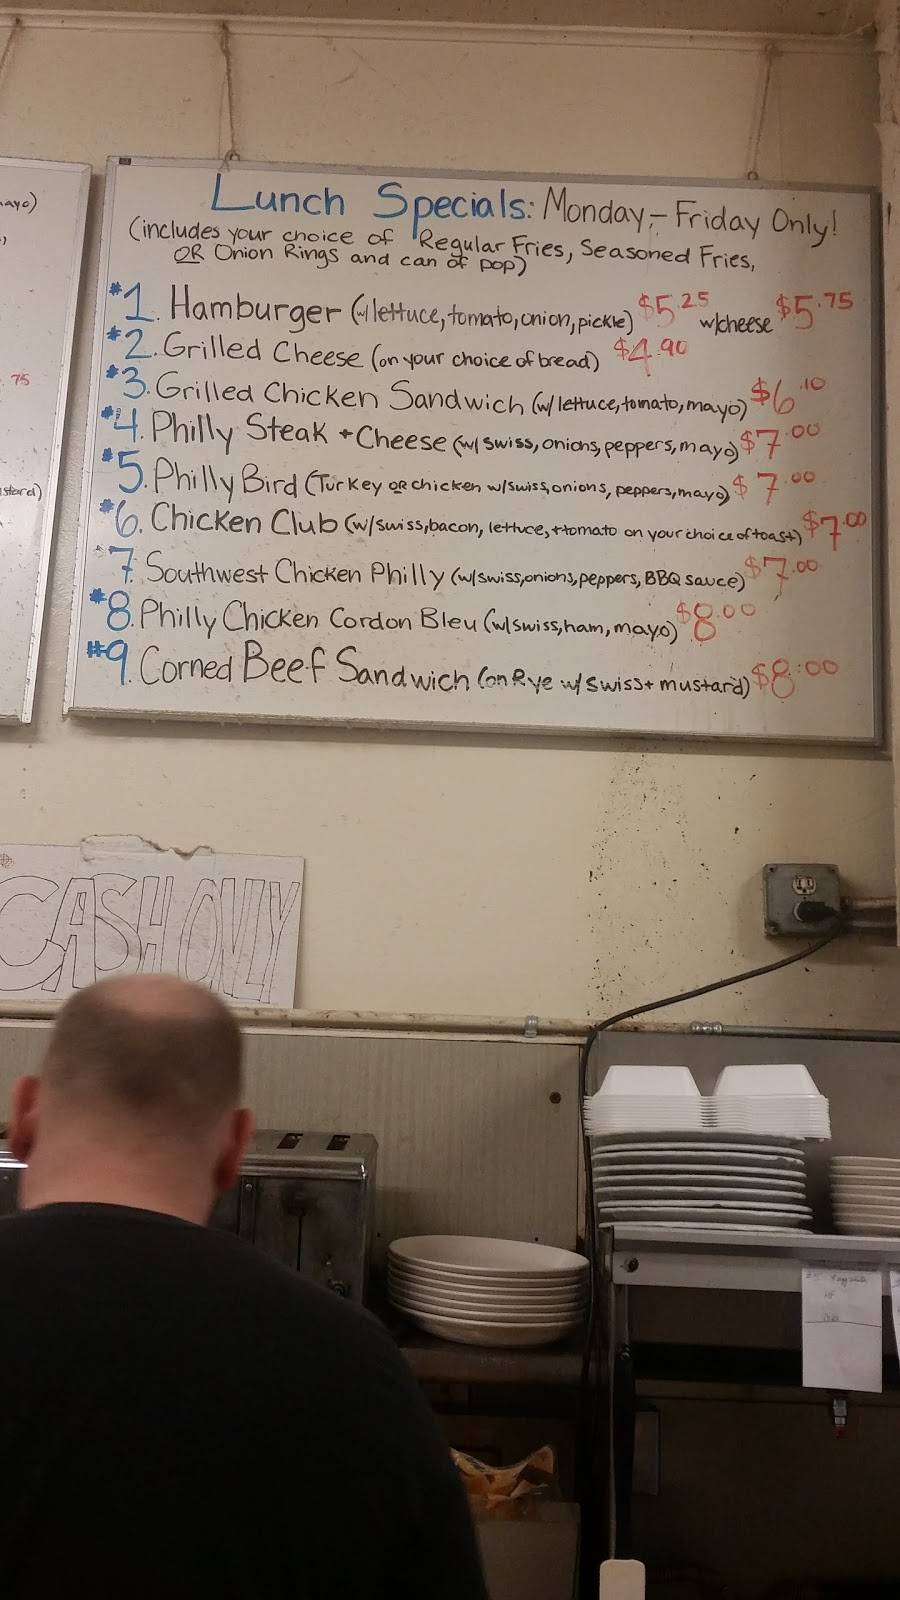 ayo)
75
stard)
Lunch Specials: Monday - Friday Only!
(includes your choice of Regular Fries, Seasoned Fries,
OR Onion Rings and can of pop)
#1. Hamburger (w/lettuce, tomato, onion, pickle) $5.25 w/cheese $5.75
#2. Grilled Cheese (on your choice of bread) $4.90
#3. Grilled Chicken Sandwich (w/ lettuce, tomato, mayo) $6.10
#4. Philly Steak + Cheese (w/ swiss, onions, peppers, mayo) $7.00
#5. Philly Bird (Turkey OR chicken w/swiss, onions, peppers, mayo) $7.00
#6. Chicken Club (w/swiss, bacon, lettuce, + tomato on your choice of toast) $7.00
#7. Southwest Chicken Philly (w/swiss, onions, peppers, BBQ sauce) $7.00
#8. Philly Chicken Cordon Bleu (w/swiss, ham, mayo) $8.00
#9. Corned Beef Sandwich (on Rye w/ swiss + mustard) $8.00
CASH ONLY